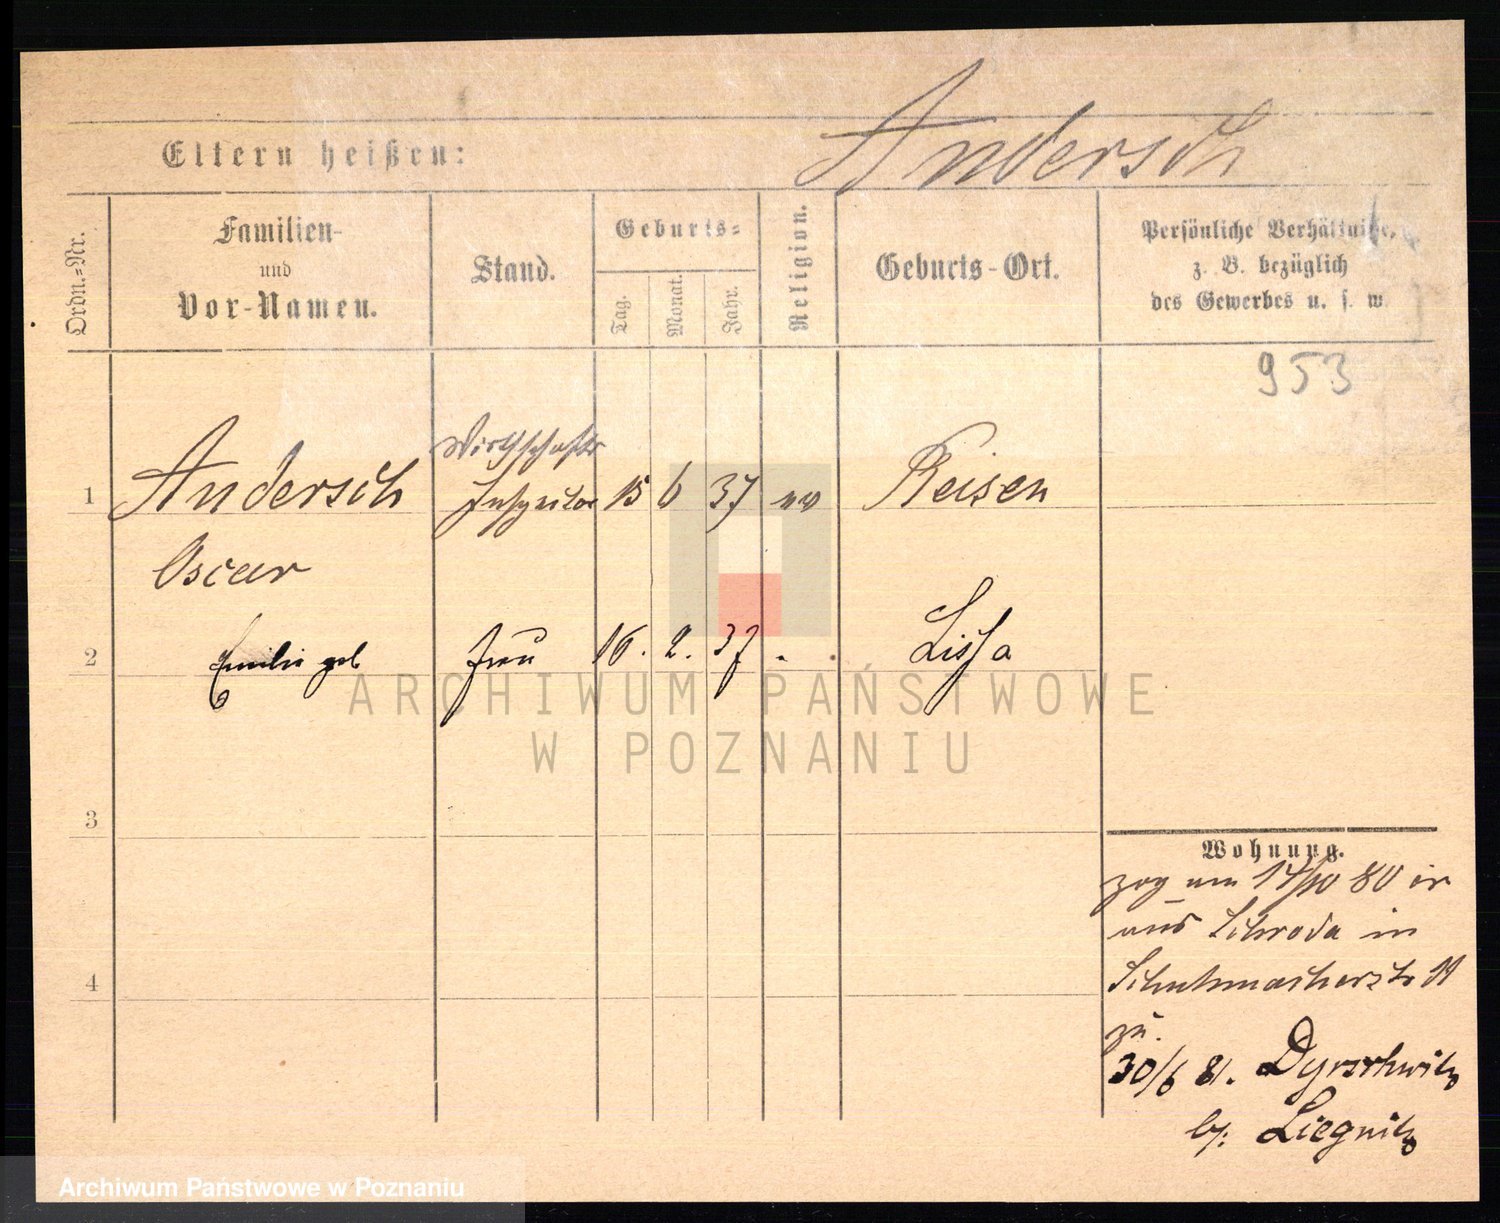 Andersch
Eltern heißen:
Ordn.=Nr.
Familien-
und
Vor-Namen.
Stand.
Geburts=
Tag.
Monat.
Jahr.
Religion.
Geburts-Ort.
Persönliche Verhältnisse,
z. B. bezüglich
des Gewerbes u. s. w.
953
1 Andersch Wirthschafts Inspector 15 6 37 ev Reisen
Oscar
2 Emilie geb Frau 16. 2. 37 . . Lissa
3
4
Wohnung.
zog am 14/10 80 er
aus Schroda in
Schuhmacherstr 11
zu.
30/6 81. Dyrschwitz
b/: Liegnitz
ARCHIWUM PAŃSTWOWE
W POZNANIU
Archiwum Państwowe w Poznaniu